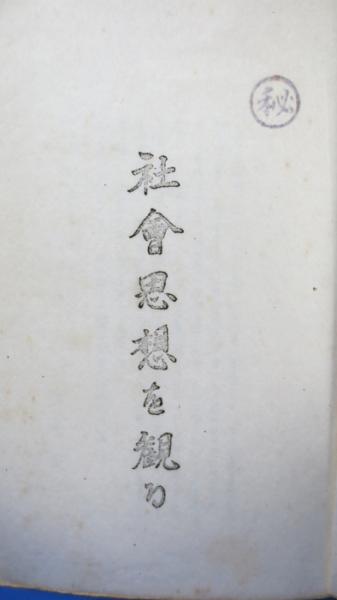 秘
社會思想を観る